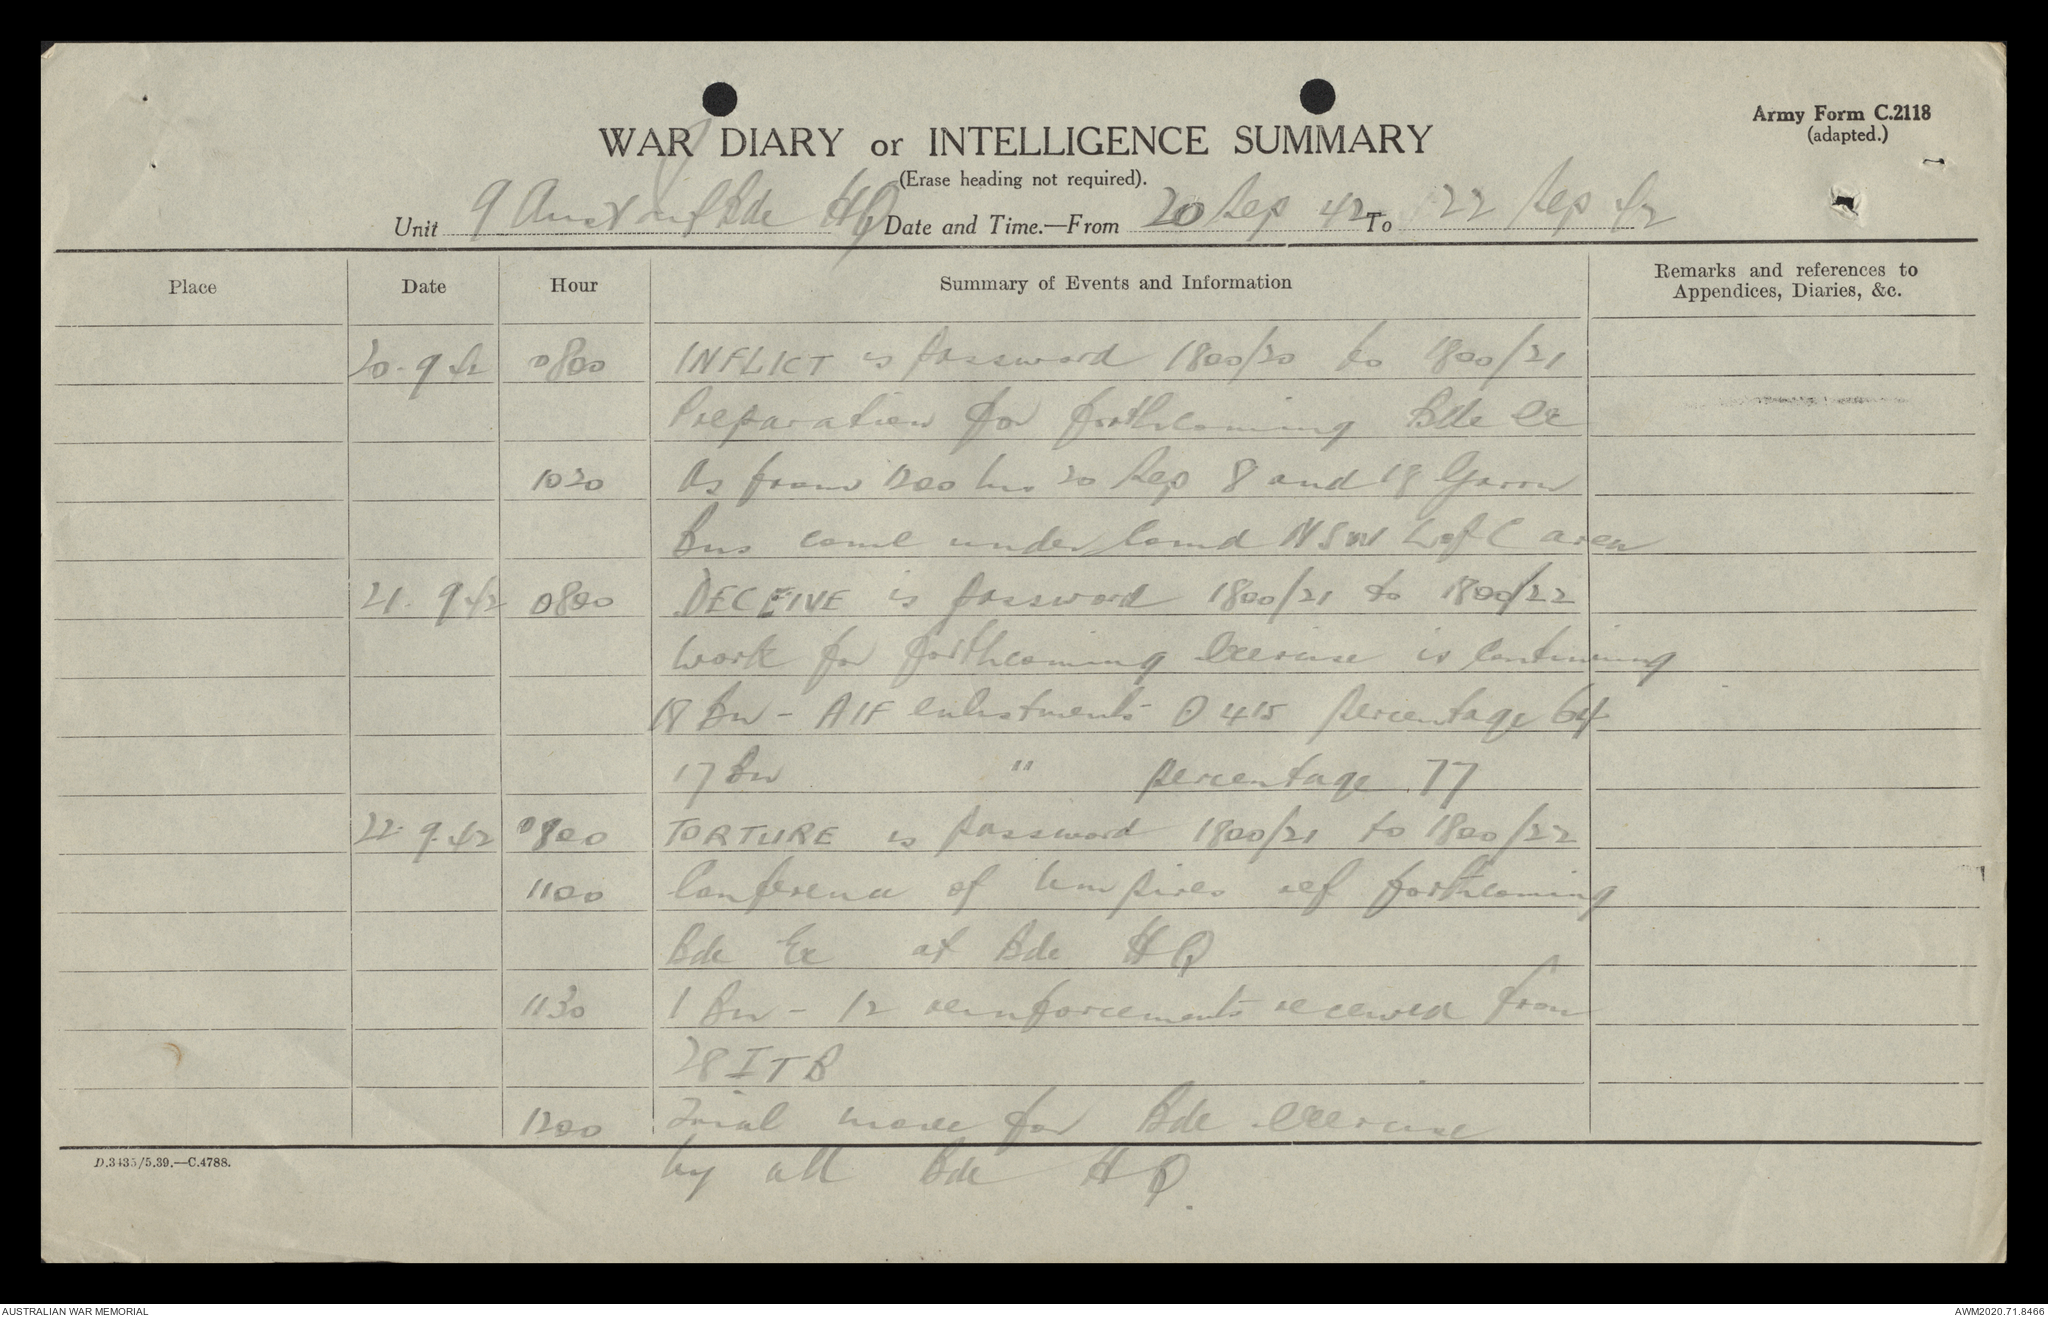 Army Form C.2118
(adapted.)
WAR DIARY or INTELLIGENCE SUMMARY
(Erase heading not required).
Unit 9 Aust Inf Bde HQ Date and Time.—From 20 Sep 42 To 22 Sep 42
Place Date Hour Summary of Events and Information Remarks and references to Appendices, Diaries, &c.
20.9.42 0800 INFLICT is password 1800/20 to 1800/21
Preparation for forthcoming Bde Ex
1020 As from 1200 hrs 20 Sep 8 and 18 Garrn
Bns come under Comd NSW L of C area
21.9.42 0800 DECEIVE is password 1800/21 to 1800/22
Work for forthcoming Exercise is continuing
18 Bn - AIF enlistments 415 percentage 64
17 Bn " percentage 77
22.9.42 0800 TORTURE is password 1800/21 to 1800/22
1100 Conference of Umpires ref forthcoming
Bde Ex at Bde HQ
1130 1 Bn - 12 reinforcements received from
28 ITB
1200 Trial move for Bde Exercise
by all Bde HQ.
D.3435/5.39.—C.4788.
AUSTRALIAN WAR MEMORIAL AWM2020.71.8466